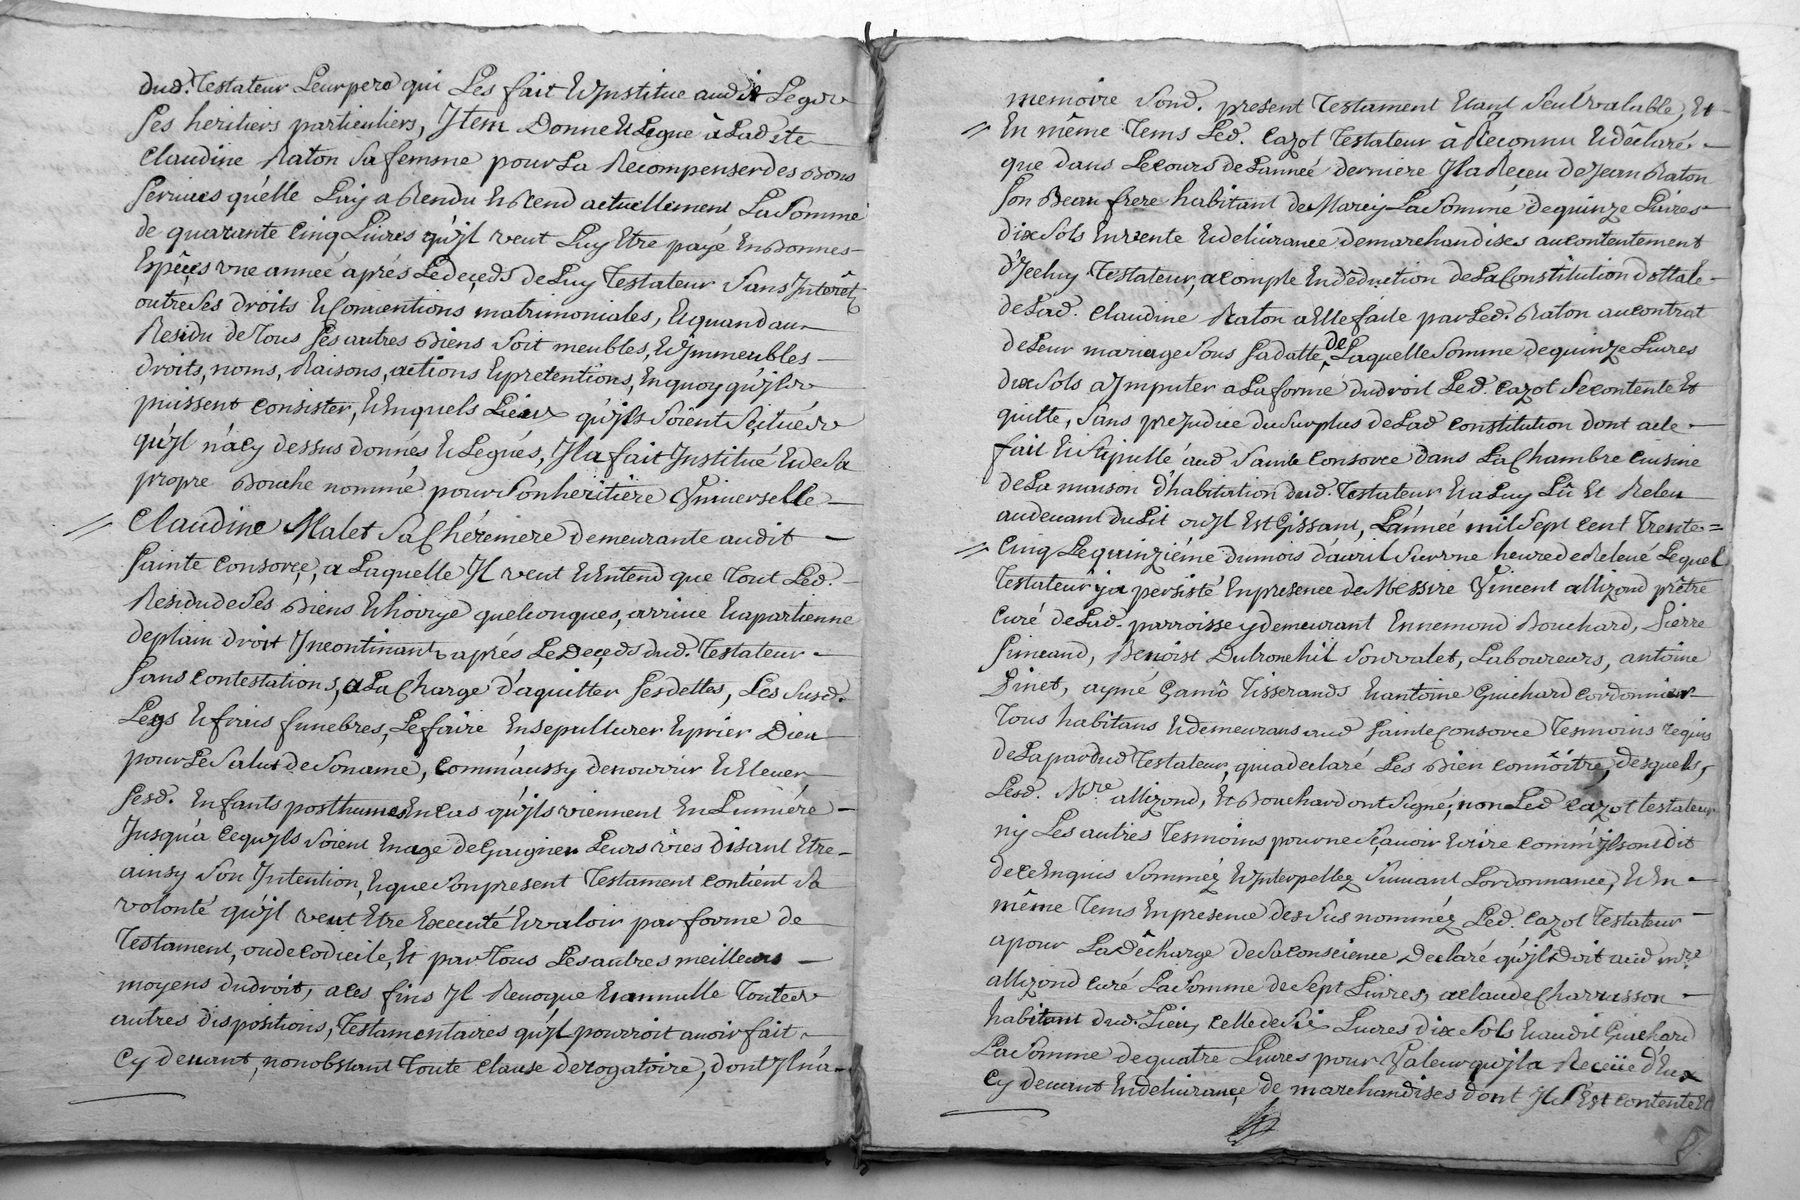 dud. Testateur Leur pere qui Les fait Et Institue audit Legs
ses heritiers particuliers, Item Donne Et Legue à Ladite
Claudine Raton Sa femme pour La Recompenser des Bons
services qu'elle Luy a Rendu Et Rend actuellement La Somme
de quarante Cinq Livres qu'jl veut Luy Etre payé En Bonnes
Espêçes vne année aprés Le deçeds de Luy Testateur Sans Interêt
outre Ses droits Et Conventions matrimoniales, Et quand au
Residu de Tous Ses autres Biens Soit meubles, Et Jmmeubles
droits, noms, Raisons, actions Et pretentions, En quoy qu'jls
puissent Consister, Et En quels Lieux qu'jls Soient Sçitués
qu'jl n'a Cy dessus donnés Et Legués, Jl a fait Institué Et de Sa
propre Bouche nommé pour Son heritière Vniverselle
Claudine Malet Sa Chére mere demeurante audit
Sainte Consorçe, a Laquelle Jl veut Et Entend que Tout Led.
Residu de Ses Biens Et hoirye quelconques, arrive Et apartienne
de plain droit Jncontinant aprés Le Deçeds dud. Testateur
Sans Contestations, a La Charge d'aquitter Ses dettes, Les Susd.
Legs Et frais funebres, Le faire Ensepulturer Et prier Dieu
pour Le Salut de Son ame, Comm'aussy de nourrir Et Elever
Sesd. Enfants posthumes En Cas qu'jls viennent En Lumiére
Jusqu'à Ce qu'jls Soient En age de Gaigner Leurs vies disant Etre
ainsy Son Intention, Et que Son present Testament Contient Sa
volonté qu'jl veut Etre Executé Et valoir par forme de
Testament, ou de Codicile, Et par Tous Les autres meilleurs
moyens du droit, a Ces fins Jl Revoque Et annulle Toutes
autres dispositions, Testamentaires qu'jl pourroit avoir fait
Cy devant, nonobstant Toute Clause derogatoire, dont Jl n'a
memoire Sond. present Testament Etant Seul valable, Et
En même Tems Led. Cazot Testateur à Reconnu Et dêclaré
que dans Le Cours de L'année derniere Jl a Reçeu de Jean Raton
Son Beau frere habitant de Marcy La Somme de quinze Livres
dix Sols En vente Et delivrance de marchandises au Contentement
d'Jceluy Testateur, a Compte En dêduction de La Constitution dottale
de Lad. Claudine Raton a Elle faite par Led. Raton au Contrat
de Leur mariage Sous Sa datte, de Laquelle Somme de quinze Livres
dix Sols a Jmputer a La forme du droit Led. Cazot Se Contente Et
quitte, Sans prejudice du Surplus de Lad Constitution dont acte
fait Et Stipullé aud Sainte Consorce dans La Chambre Cuisine
de La maison d'habitation dud. Testateur Et a Luy Lû Et Releu
au devant du Lit ou Jl Est Gissant, L'année mil Sept Cent Trente=
Cinq Le quinziéme du mois d'avril Sur vne heure de Relevé Lequel
Testateur y a persisté En presence de Messire Vincent allizond prêtre
Curé de Lad. parroisse y demeurant Ennemond Bouchard, Pierre
Simeand, Benoist Dutronchit Son valet, Laboureurs, antoine
Pinet, aymé Gamô Tisserands Et antoine Guichard Cordonnier
Tous habitans Et demeurans aud Sainte Consorce Tesmoins requis
de La part dud Testateur, qui a declaré Les Bien Connôitre, desquels,
Lesd. Mre. allizond, Et Bouchard ont Signé; non Led Cazot testateur
ny Les autres Tesmoins pour ne Sçavoir Ecrire Comm'jls ont dit
de Ce Enquis Sommez Et Interpellez Suivant L'ordonnance, Et En
même Tems En presence des Sus nomméz Led. Cazot Testateur
a pour La Dêcharge de Sa Conscience Declaré qu'jl Doit aud Mre.
allizond Curé La Somme de Sept Livres, a Claude Charrasson
habitant dud. Lieu, Celle de Six Livres dix Sols Et audit Guichard
La Somme de quatre Livres pour Valeur qu'jl a Reçeüe d'Eux
Cy devant En delivrançe de marchandises dont Jl S'Est Contenté Et